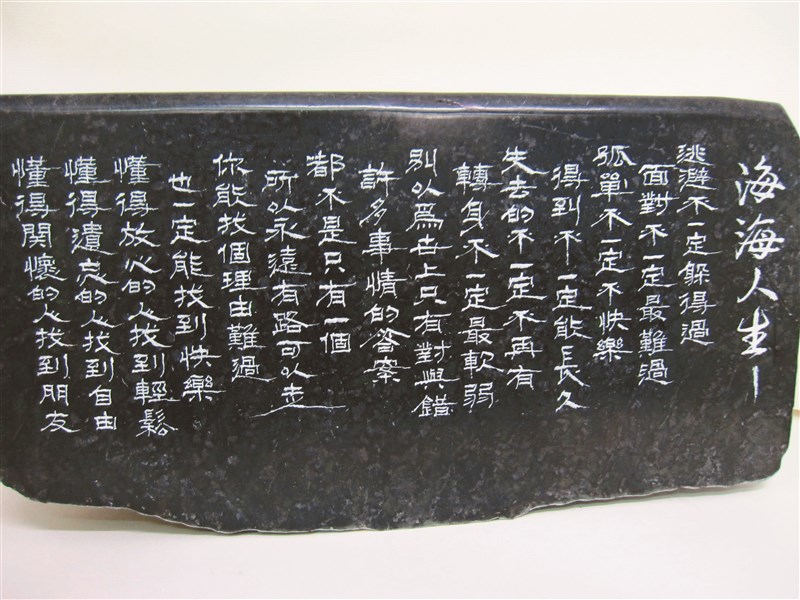 海海人生｜
逃避不一定躲得過
面對不一定最難過
孤單不一定不快樂
得到不一定能長久
失去的不一定不再有
轉身不一定最軟弱
別以為世上只有對與錯
許多事情的答案
都不是只有一個
所以永遠有路可以走
你能找個理由難過
也一定能找到快樂
懂得放心的人找到輕鬆
懂得遺忘的人找到自由
懂得關懷的人找到朋友